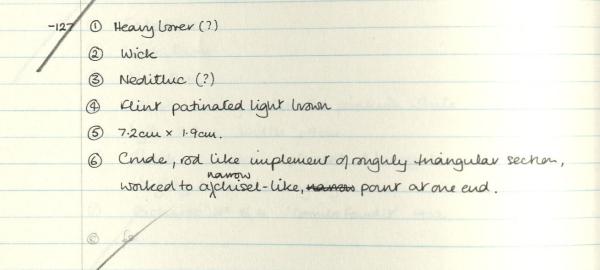 -127 ① Heavy borer (?)
② Wick
③ Neolithic (?)
④ Flint patinated light brown
⑤ 7.2cm × 1.9cm.
⑥ Crude, rod like implement of roughly triangular section,
worked to a narrow chisel-like, point at one end.